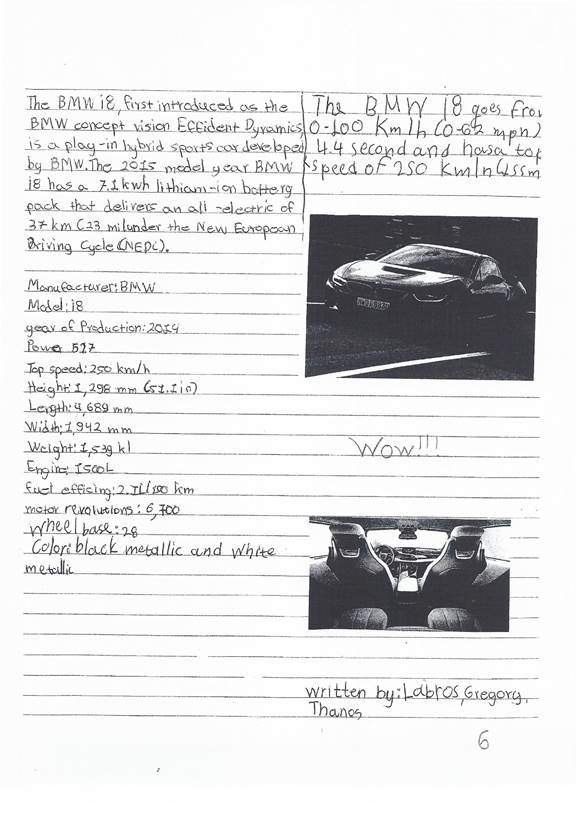 The BMW i8, first introduced as the
BMW concept vision Effident Dynamics,
is a play-in hybrid sports car developed
by BMW. The 2015 model year BMW
i8 has a 7.1 kwh lithium-ion battery
pack that delivers an all-electric of
37 km (23 mi under the New European
Driving Cycle (NEDC).
The BMW i8 goes from
0-100 Km/h (0-62 mph)
4.4 second and hasa top
speed of 250 Km/h
Manufacturer: BMW
Model: i8
year of Production: 2014
Power 517
Top speed: 250 km/h
Height: 1,298 mm (51.1 in)
Length: 4,689 mm
Width: 1,942 mm
Weight: 1,539 kl
Engine: 1500L
fuel efficing: 2.1L/100 km
motor revolutions: 6,700
Wheel base: 28
Color: black metallic and white
metallic
Wow!!!
written by: Labros, Gregory,
Thanos
6